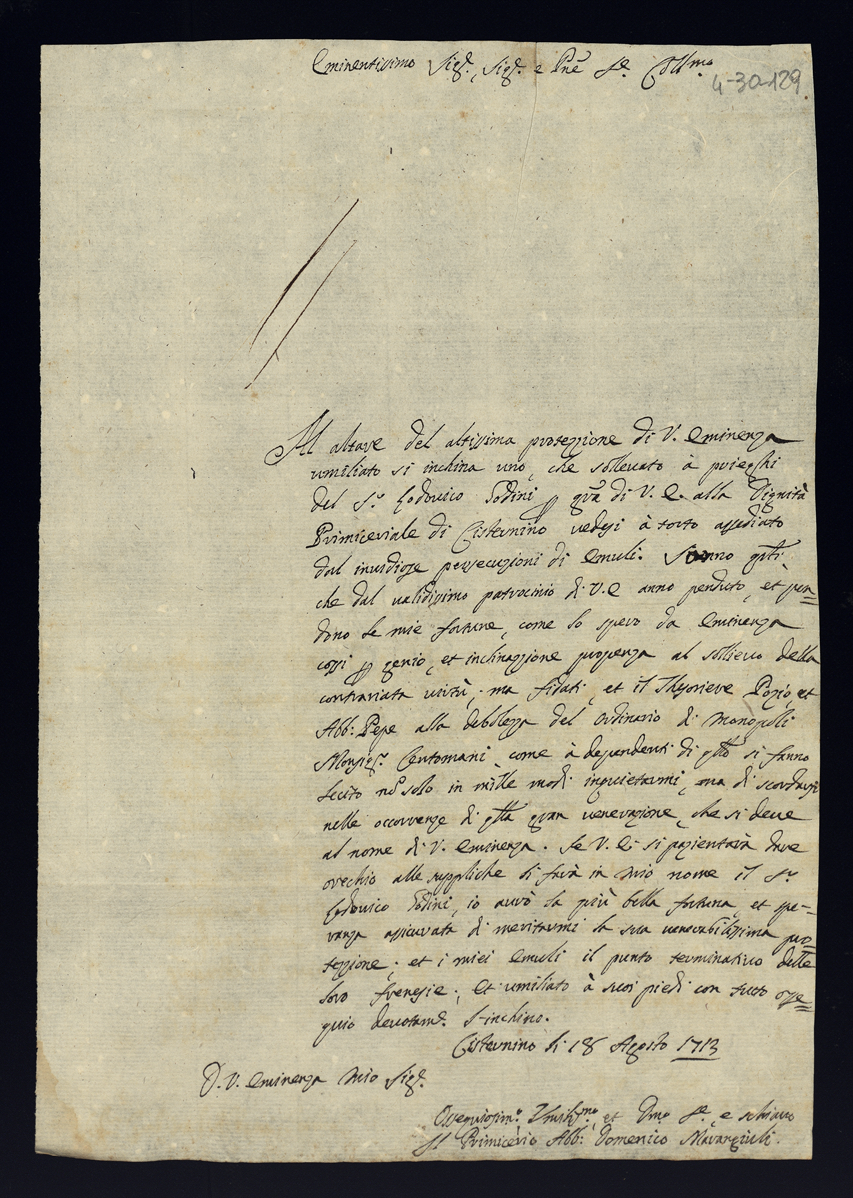 Eminentissimo Sig.r, Sig.r e Pñe Se. Coll.mo
4-30-129
Al altare del altissima protezzione di V. Eminenza
umiliato si inchina uno, che sollevato à prieghi
del S.r Lodovico Sodini p grã di V. E. alla Dignità
Primiceriale di Cisternino vedesi à torto assediato
dal invidiose persecuzioni di emuli. Sanno q.sti
che dal validissimo patrocinio di V. E anno penduto, et pen=
dono le mie fortune, come lo spero da Eminenza
cossi p genio, et inclinazzione propenza al sollievo della
contrariata virtù, ma fidati, et il Thesoriere Pozio, et
Abb: Pepe alla debolezza del Ordinario di Monopoli
Monsig.r Centomani, come à dependenti di q.sto si fanno
lecito nõ solo in mille modi inquietarmi, ma di scordarsi
nelle occorrenze di q.lla gran venerazione, che si deve
al nome di V. Eminenza. Se V. E. si pazientarà dare
orechio alle suppliche di farà in mio nome il S.r
Lodovico Sodini, io avrò la più bella fortuna, et spe-
ranza assicurata di meritarmi la sua venerabilissima pro=
tezzione, et i miei emuli il punto terminativo delle
loro frenesie, et umiliato à suoi piedi con tutto osse=
quio devotam.e l'inchino.
Cisternino li 18 Agosto 1713
D. V. Eminenza mio Sig.r
Ossequiosim.o Umiliss.mo et Dmo Se. e schiavo
Il Primicerio Abb: Domenico Marangiuli.